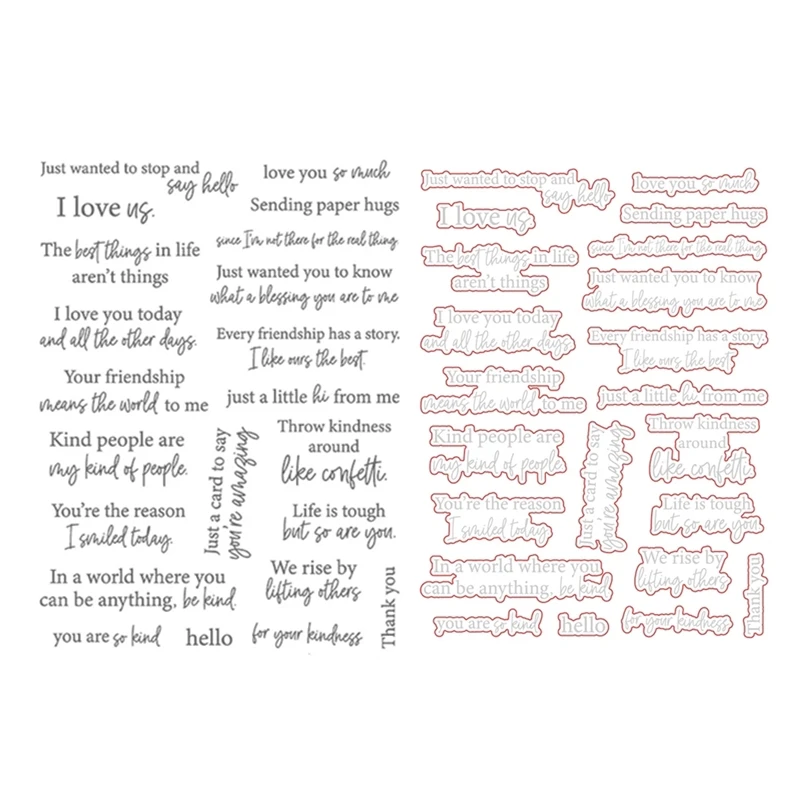 Just wanted to stop and
say hello
I love us.
The best things in life
aren't things
I love you today
and all the other days.
Your friendship
means the world to me
Kind people are
my kind of people.
You're the reason
I smiled today.
In a world where you
can be anything, be kind.
you are so kind
hello
Just a card to say
you're amazing
love you so much
Sending paper hugs
since I'm not there for the real thing
Just wanted you to know
what a blessing you are to me
Every friendship has a story.
I like ours the best.
just a little hi from me
Throw kindness
around
like confetti.
Life is tough
but so are you.
We rise by
lifting others
for your kindness
Thank you
Just wanted to stop and
say hello
I love us.
The best things in life
aren't things
I love you today
and all the other days.
Your friendship
means the world to me
Kind people are
my kind of people.
You're the reason
I smiled today.
In a world where you
can be anything, be kind.
you are so kind
hello
Just a card to say
you're amazing
love you so much
Sending paper hugs
since I'm not there for the real thing
Just wanted you to know
what a blessing you are to me
Every friendship has a story.
I like ours the best.
just a little hi from me
Throw kindness
around
like confetti.
Life is tough
but so are you.
We rise by
lifting others
for your kindness
Thank you